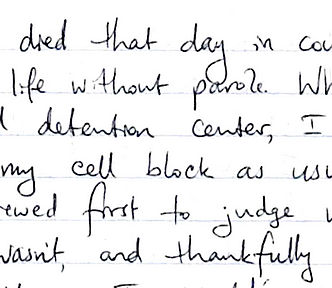 died that day in cou
life without parole. Wh
detention center, I
my cell block as usu
ewed first to judge
wasn't, and thankfully